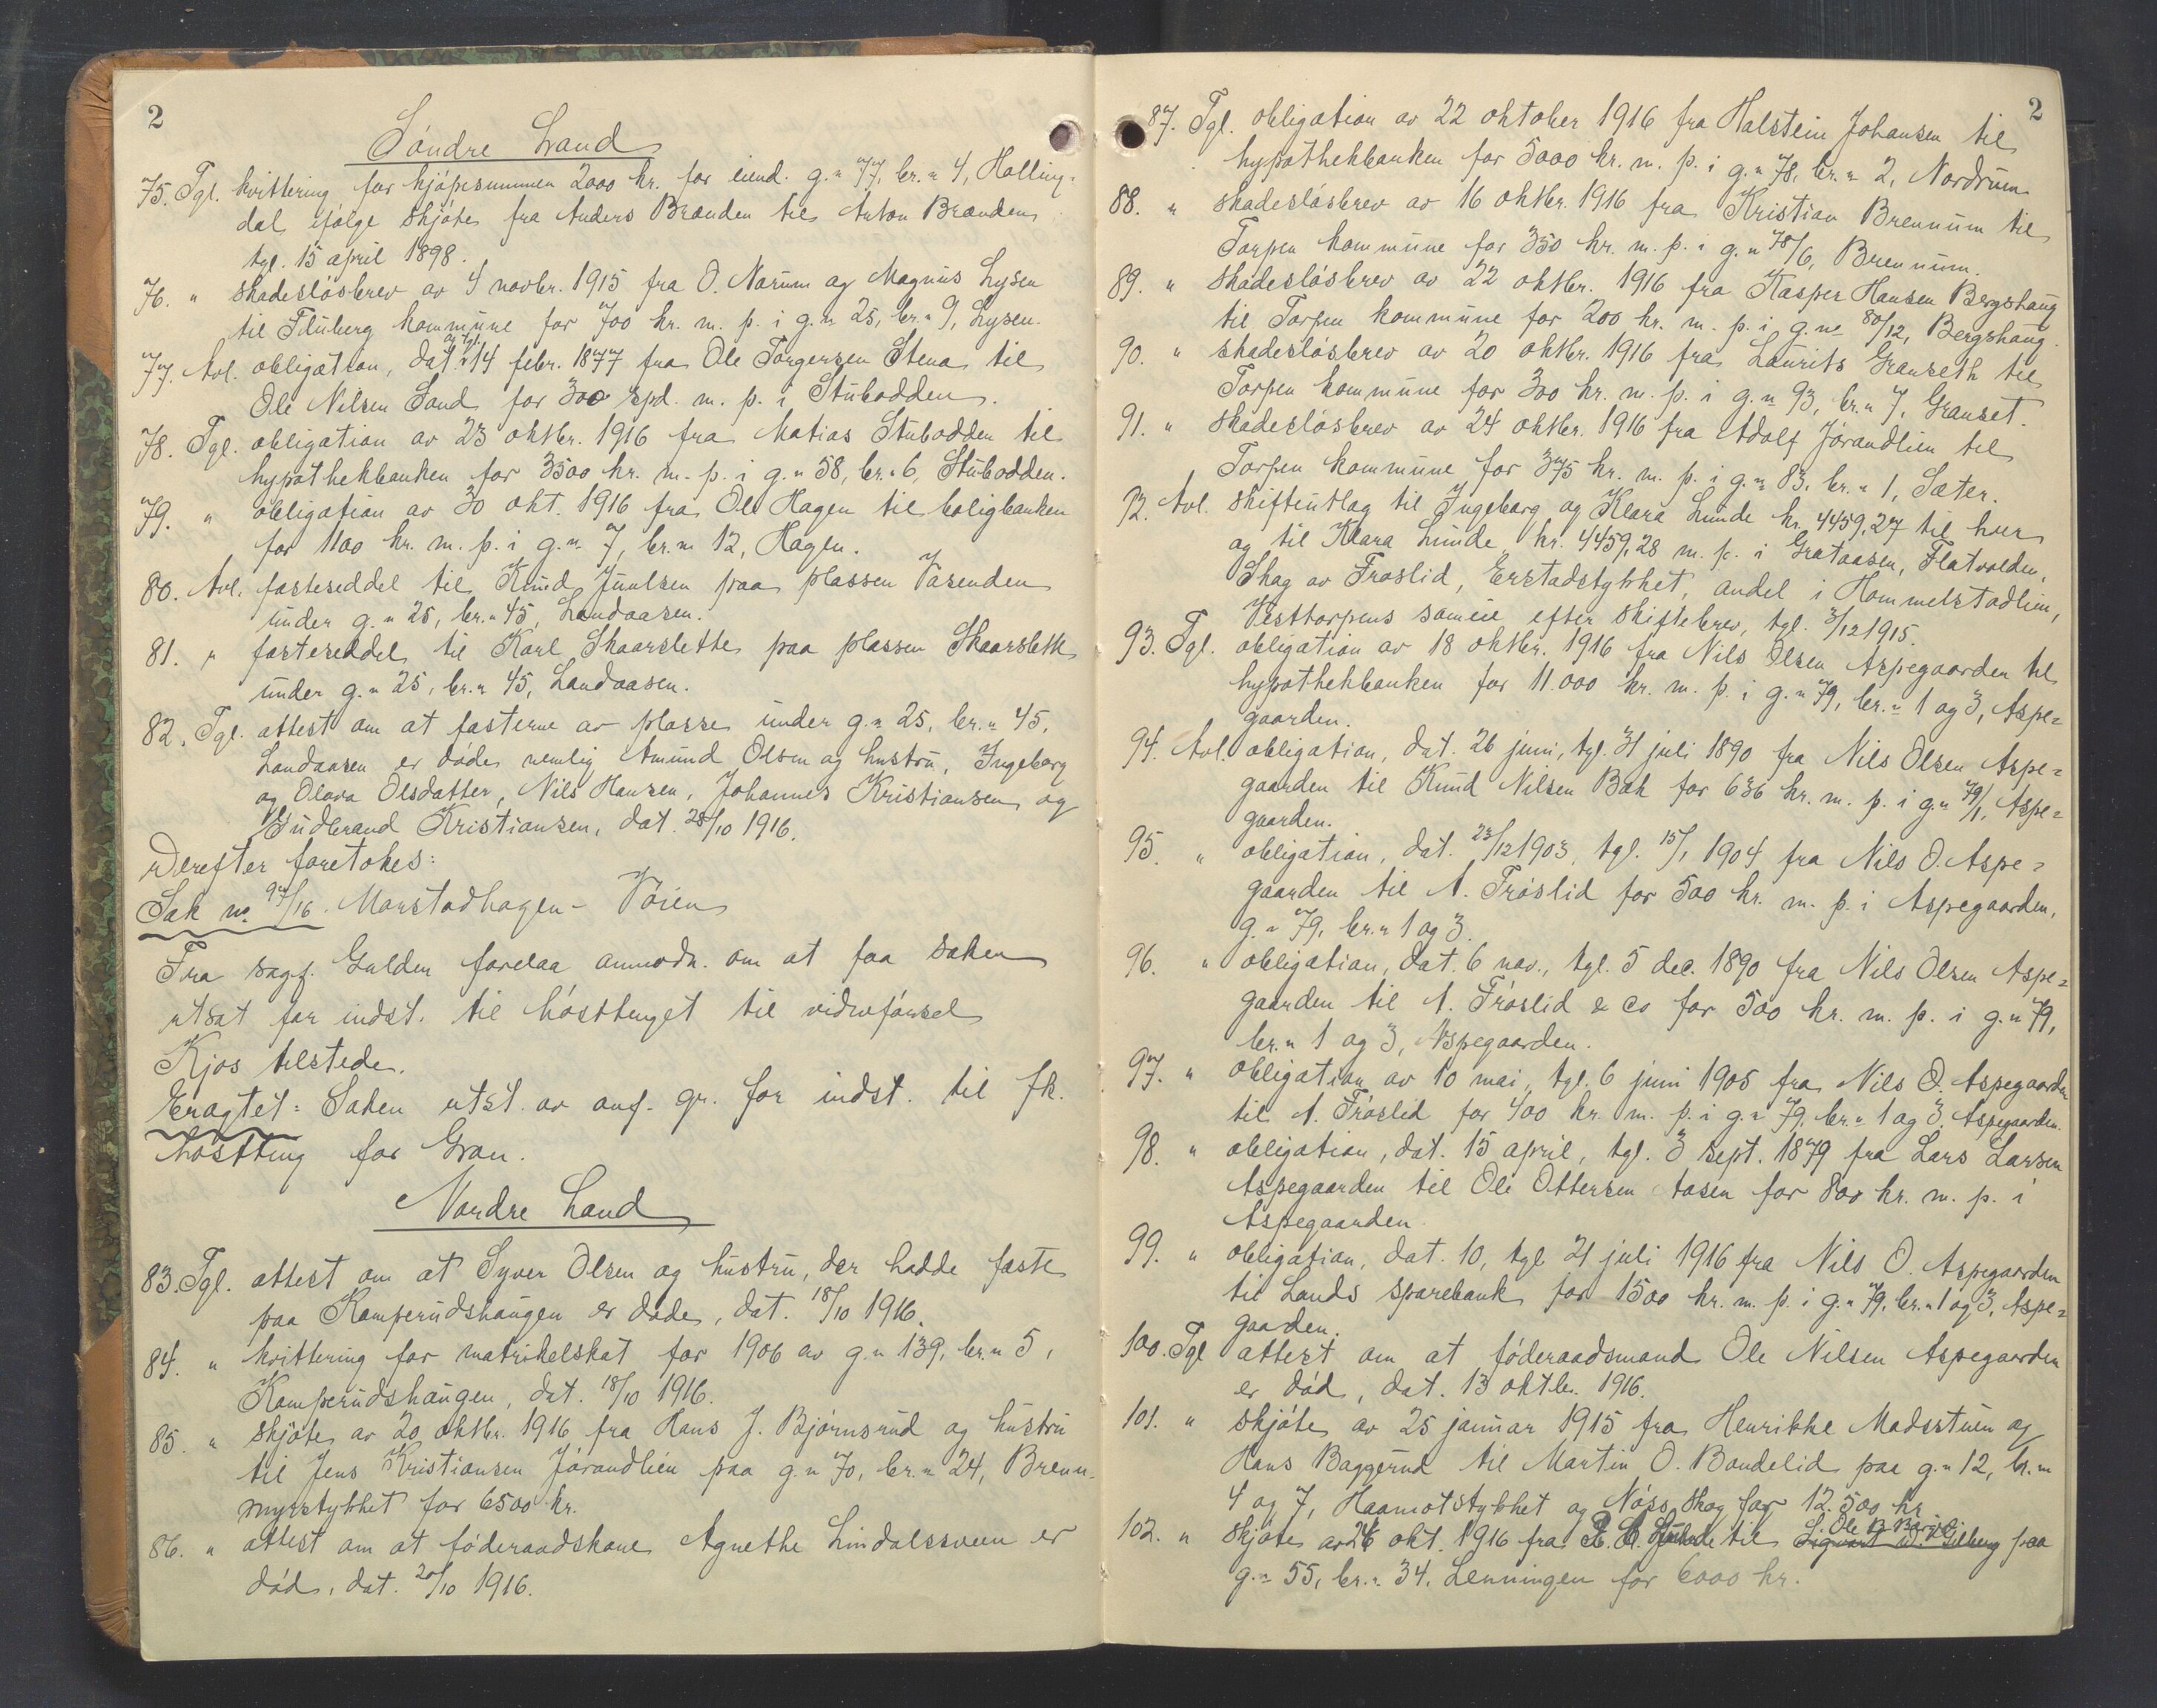 2
Söndre Land
75. Tgl. kvittering for kjöpesummen 2000 kr. for eiend. g.n 77, br.n 4, Holling-
dal ifölge skjöte fra Anders Brænden til Anton Brænden
tgl. 15 april 1898.
76. " skadeslösbrev av 4 novbr. 1915 fra O. Narum og Magnus Lysen
til Fluberg kommune for 700 kr. m. p. i g.n 25, br.n 9, Lysen.
77. Avl. obligation, dat. og tgl. 14 febr. 1877 fra Ole Torgersen Stena til
Ole Nilsen Sand for 300 spd. m. p. i Stubodden.
78. Tgl. obligation av 23 oktbr. 1916 fra Matias Stubodden til
hypothekbanken for 3500 kr. m. p. i g.n 58, br.n 6, Stubodden.
79. " obligation av 30 okt. 1916 fra Ole Hagen til boligbanken
for 1100 kr. m. p. i g.n 7, br.n 12, Hagen.
80. Avl. festeseddel til Knud Juulsen paa plassen Vasenden
under g.n 25, br.n 45, Landaasen.
81. " festeseddel til Karl Skaarslette paa plassen Skaarslette
under g.n 25, br.n 45, Landaasen.
82. Tgl. attest om at festerne av plasse under g.n 25, br.n 45,
Landaasen er döde nemlig Amund Olsen og hustru, Ingeborg
og Olava Olsdatter, Nils Hansen, Johannes Kristiansen og
Gudbrand Kristiansen, dat. 28/10 1916.
Derefter foretokes:
Sak no. 97/16. Marstadhagen - Vöien
Fra sagf. Gulden forelaa anmodn. om at faa saken
utsat for indst. til hösttinget til vidneförsel
Kjos tilstede.
Eragtet: Saken utst. av anf. gr. for indst. til fk.
höstting for Gran.
Nordre Land
83. Tgl. attest om at Syver Olsen og hustru, der hadde feste
paa Kamperudshaugen er döde, dat. 18/10 1916.
84. " kvittering for matrikelskat for 1906 av g.n 139, br.n 5,
Kamperudshaugen, dat. 18/10 1916.
85. " skjöte av 20 oktbr. 1916 fra Hans J. Björnsrud og hustru
til Jens Kristiansen Jörandlien paa g.n 70, br.n 24, Brenn-
myrstykket for 6500 kr.
86. " attest om at föderaadskone Agnethe Lindalssveen er
död, dat. 20/10 1916.
2
87. Tgl. obligation av 22 oktober 1916 fra Halstein Johansen til
hypothekbanken for 5000 kr. m. p. i g.n 78, br.n 2, Nordrum.
88. " skadeslösbrev av 16 oktbr. 1916 fra Kristian Brennum til
Torpen kommune for 350 kr. m. p. i g.n 78/6, Brennum.
89. " skadeslösbrev av 22 oktbr. 1916 fra Kasper Hansen Bergshaug
til Torpen kommune for 200 kr. m. p. i g.no 80/12, Bergshaug.
90. " skadeslösbrev av 20 oktbr. 1916 fra Laurits Granseth til
Torpen kommune for 300 kr. m. p. i g.n 93, br.n 7, Granset.
91. " skadeslösbrev av 24 oktbr. 1916 fra Adolf Jörandlien til
Torpen kommune for 375 kr. m. p. i g.n 83, br.n 1, Sæter.
92. Avl. skifteutlag til Ingeborg og Klara Lunde kr. 4459,27 til hver
og til Klara Lunde kr. 4459,28 m. p. i Grataasen, Flatvolden,
Skag av Fröslid, Erstadstykket, andel i Hommelstadlien,
Vesttorpens sameie efter skiftebrev, tgl. 3/12 1915.
93. Tgl. obligation av 18 oktbr. 1916 fra Nils Olsen Aspegaarden til
hypothekbanken for 11.000 kr. m. p. i g.n 79, br.n 1 og 3, Aspe=
gaarden.
94. Avl. obligation, dat. 26 juni, tgl. 31 juli 1890 fra Nils Olsen Aspe=
gaarden til Knud Nilsen Bak for 636 kr. m. p. i g.n 79/1, Aspe=
gaarden.
95. " obligation, dat. 23/12 1903, tgl. 15/1 1904 fra Nils O. Aspe=
gaarden til A. Fröslid for 500 kr. m. p. i Aspegaarden,
g.n 79, br.n 1 og 3.
96. " obligation, dat. 6 nov., tgl. 5 dec. 1890 fra Nils Olsen Aspe=
gaarden til A. Fröslid & co for 500 kr. m. p. i g.n 79,
br.n 1 og 3, Aspegaarden.
97. " obligation av 10 mai, tgl. 6 juni 1905 fra Nils O. Aspegaarden
til A. Fröslid for 400 kr. m. p. i g.n 79, br.n 1 og 3, Aspegaarden.
98. " obligation, dat. 15 april, tgl. 3 sept. 1879 fra Lars Larsen
Aspegaarden til Ole Ottersen Aasen for 800 kr. m. p. i
Aspegaarden.
99. " obligation, dat. 10, tgl 21 juli 1916 fra Nils O. Aspegaarden
til Lands sparebank for 1500 kr. m. p. i g.n 79, br.n 1 og 3, Aspe=
gaarden.
100. Tgl attest om at föderaadsmand Ole Nilsen Aspegaarden
er död, dat. 13 oktbr. 1916.
101. " skjöte av 25 januar 1915 fra Henrikke Madsstuen og
Hans Baggerud til Martin O. Bondelid paa g.n 12, br.n
4 og 7, Haamotstykket og Næss skog for 12.500 kr
102. " skjöte av 26 okt. 1916 fra til Ole B. paa
g.n 55, br.n 34, Lenningen for 6000 kr.